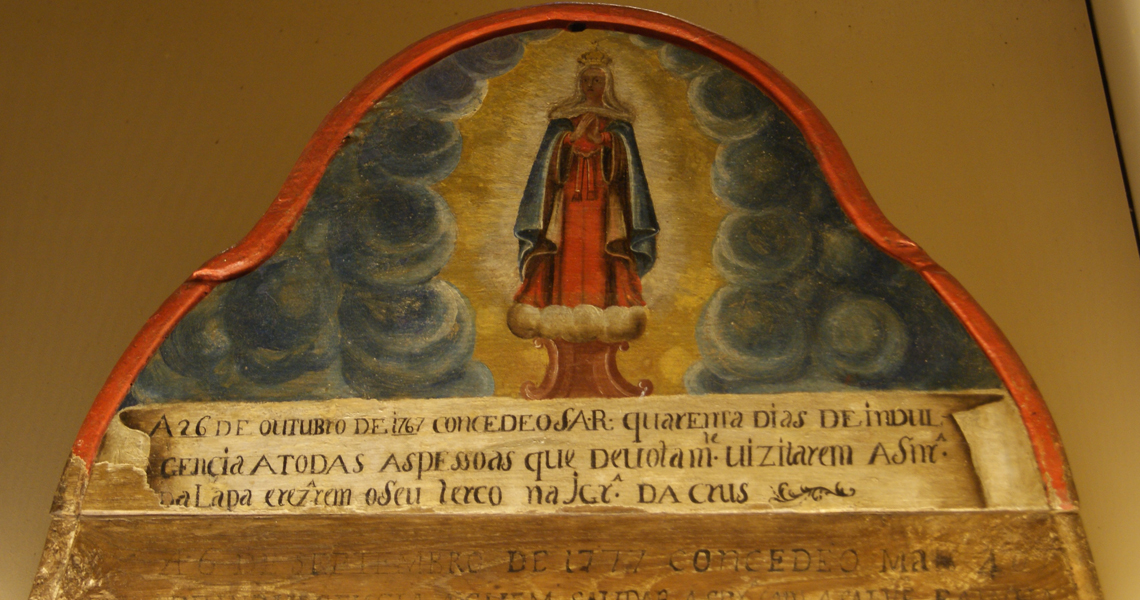 A 26 DE OUTUBRO DE 1767 CONCEDEO SAR: quarenta Dias DE iNDUL-
GENçia ATODAS AS PESSOAS que Deuotamte. uizitarem A Snrâ.
Da Lapa erezârem o Seu terco na JGrâ. DA Crus
A 6 DE SETEMBRO DE 1777 CONCEDEO Mais 4